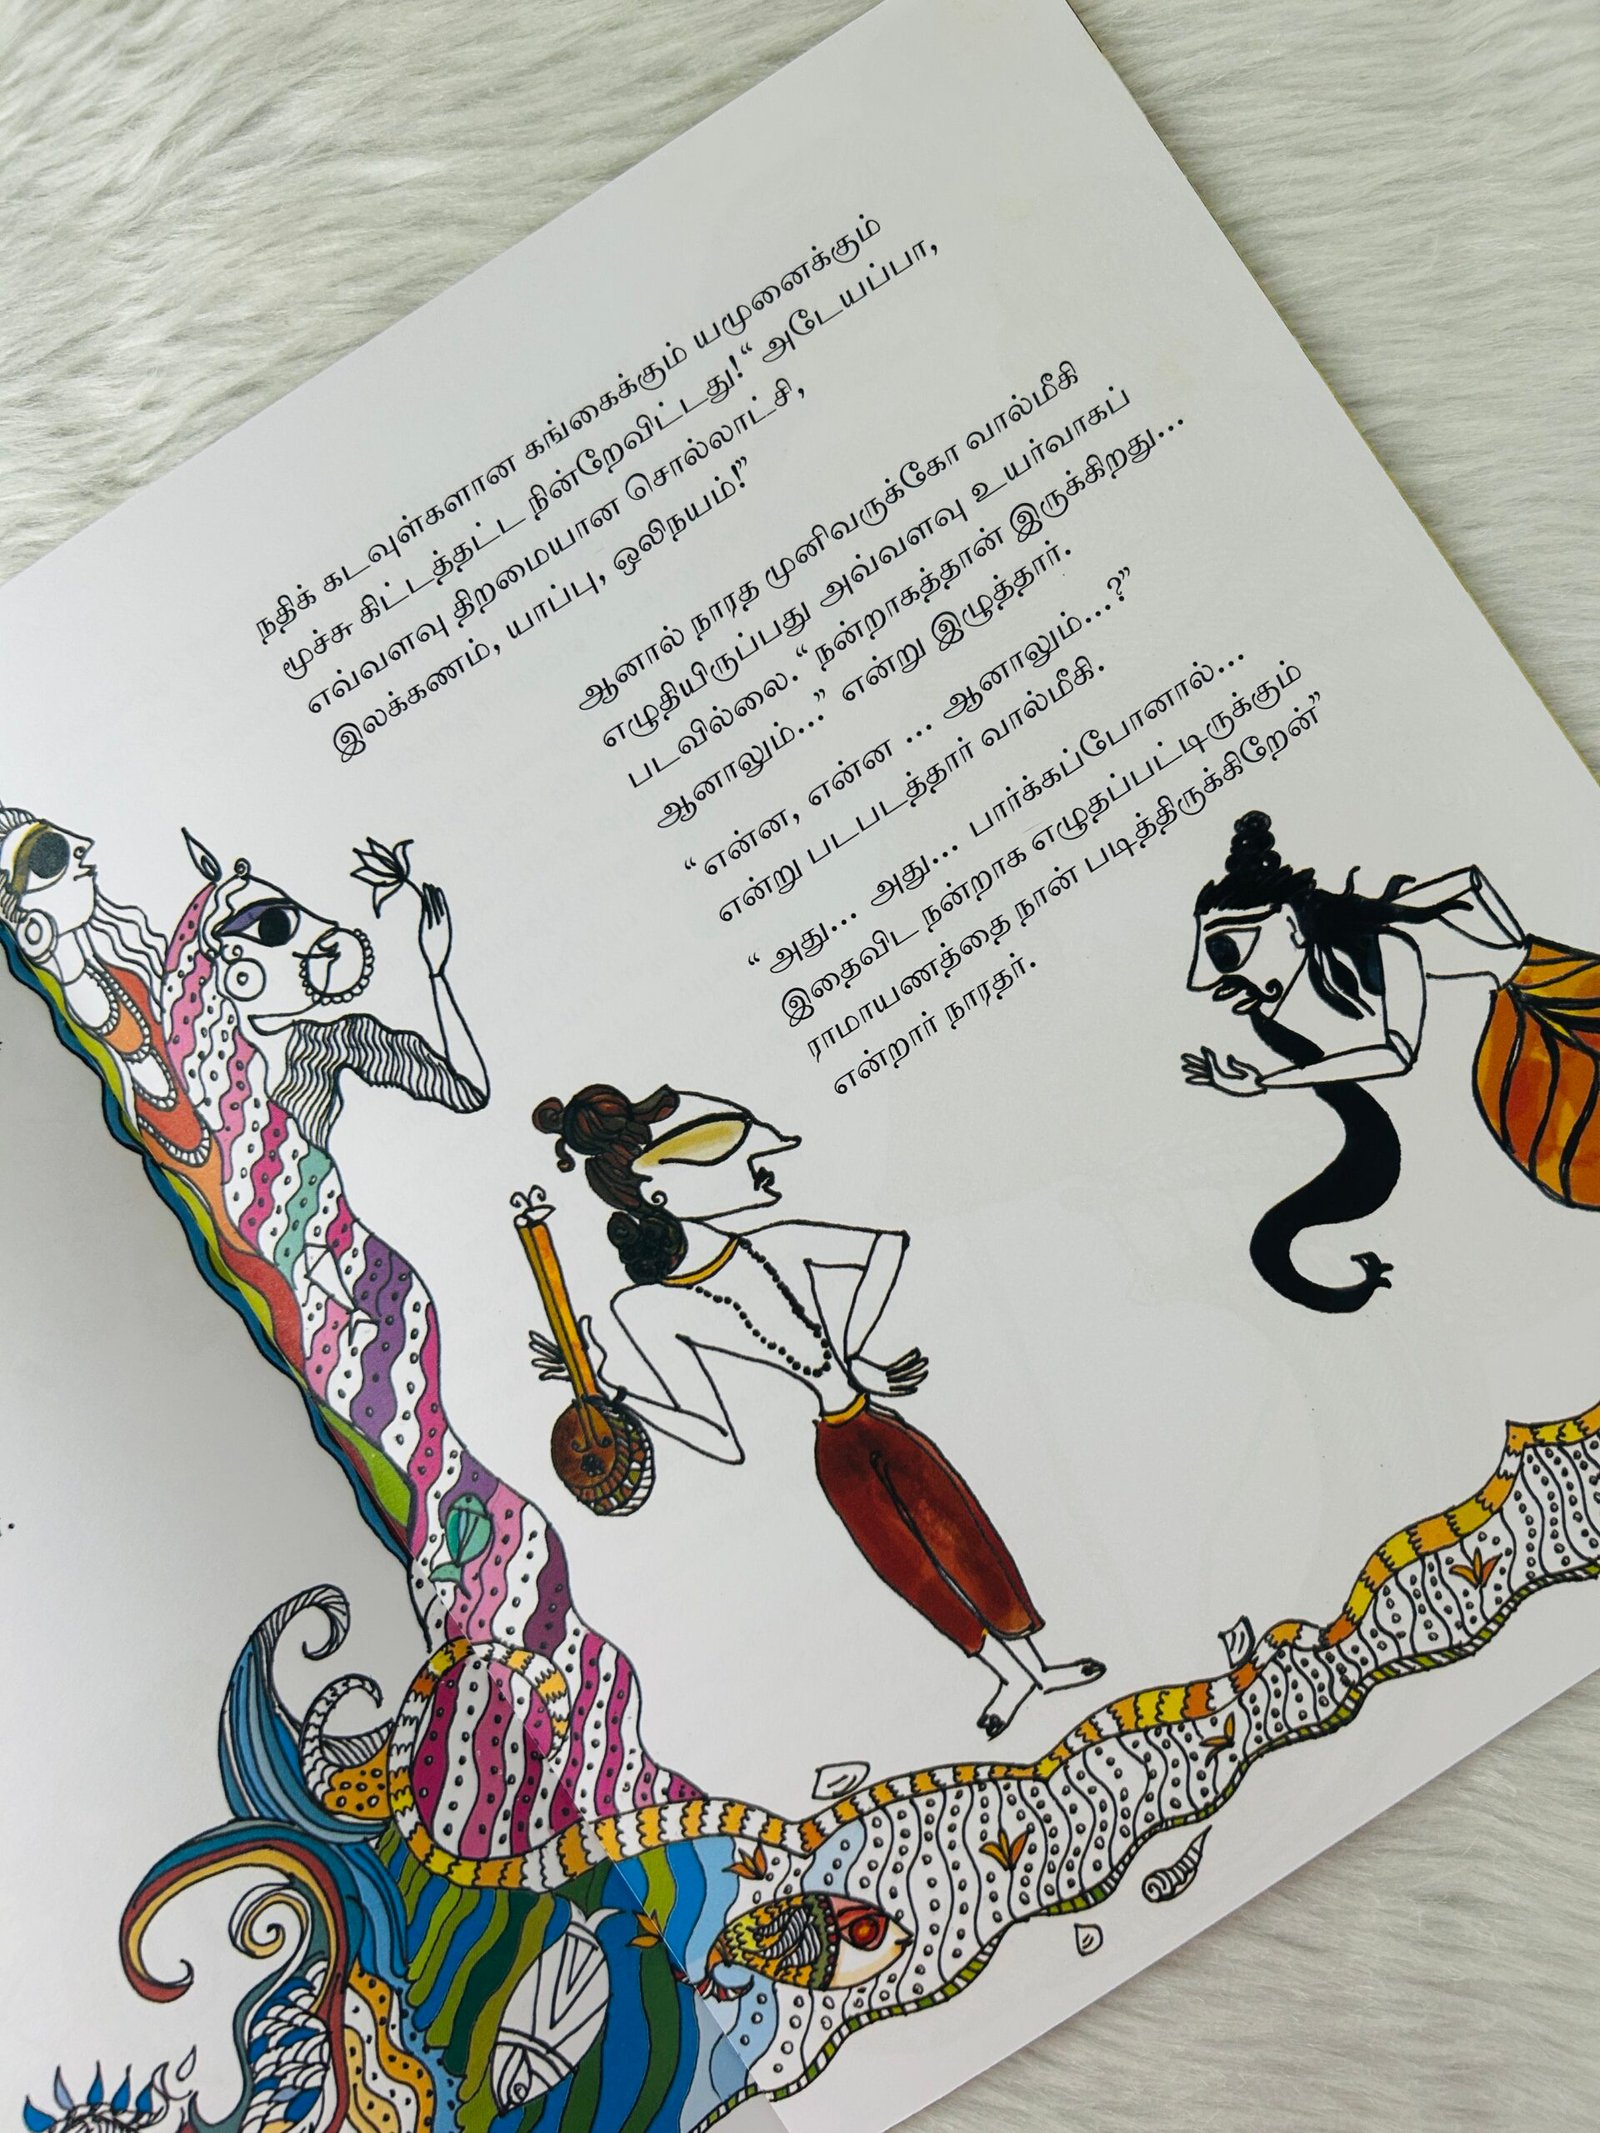 நதிக் கடவுள்களான கங்கைக்கும் யமுனைக்கும்
மூச்சு கிட்டத்தட்ட நின்றேவிட்டது!“ அடேயப்பா,
எவ்வளவு திறமையான சொல்லாட்சி,
இலக்கணம், யாப்பு, ஒலிநயம்!”
ஆனால் நாரத முனிவருக்கோ வால்மீகி
எழுதியிருப்பது அவ்வளவு உயர்வாகப்
படவில்லை. “நன்றாகத்தான் இருக்கிறது...
ஆனாலும்...” என்று இழுத்தார்.
“என்ன, என்ன ... ஆனாலும்...?”
என்று படபடத்தார் வால்மீகி.
“ அது... அது... பார்க்கப்போனால்...
இதைவிட நன்றாக எழுதப்பட்டிருக்கும்
ராமாயணத்தை நான் படித்திருக்கிறேன்”
என்றார் நாரதர்.